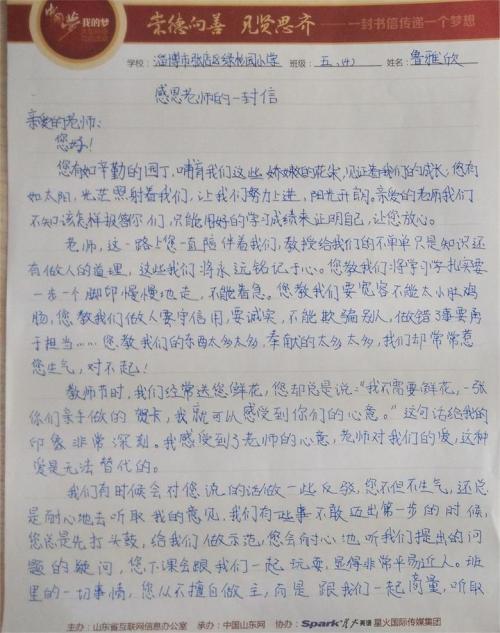 中国梦 我的梦
崇德向善 见贤思齐 ——一封书信传递一个梦想
学校：淄博市张店区绿杉园小学 班级：五.(4) 姓名：鲁雅欣
感恩老师的一封信
亲爱的老师：
您好！
您有如辛勤的园丁，哺育我们这些娇嫩的花朵，见证着我们的成长，您有
如太阳，光芒照射着我们，让我们努力上进，阳光开朗。亲爱的老师我们
不知该怎样报答你们，只能用好的学习成绩来证明自己，让您放心。
老师，这一路上您一直陪伴着我们，教授给我们的不单单只是知识还
有做人的道理，这些我们将永远铭记于心。您教我们将学习学扎实要
一步一个脚印慢慢地走，不能着急。您教我们要宽容不能太小肚鸡
肠，您教我们做人要守信用，要诚实，不能欺骗别人，做错了事要勇
于担当……您教我们的东西太多太多，奉献的太多太多，我们却常常惹
您生气，对不起！
教师节时，我们经常送您鲜花，您却总是说：“我不需要鲜花，一张
你们亲手做的贺卡，我就可以感受到你们的心意。”这句话给我的
印象非常深刻。我感受到了老师的心意，老师对我们的爱，这种
爱是无法替代的。
我们有时候会对您说的话做一些反驳，您不但不生气，还总
是耐心地去听取我的意见，我们有些事不敢迈出第一步的时候，
您总是先打头鼓，给我们做示范，您会耐心地听我们提出的问
题的疑问，您下课会跟我们一起玩耍，显得非常平易近人。班
里的一切事情，您从不擅自做主，而是跟我们一起商量，听取
主办：山东省互联网信息办公室 承办：中国山东网 协办：Spark星火英语 星火国际传媒集团